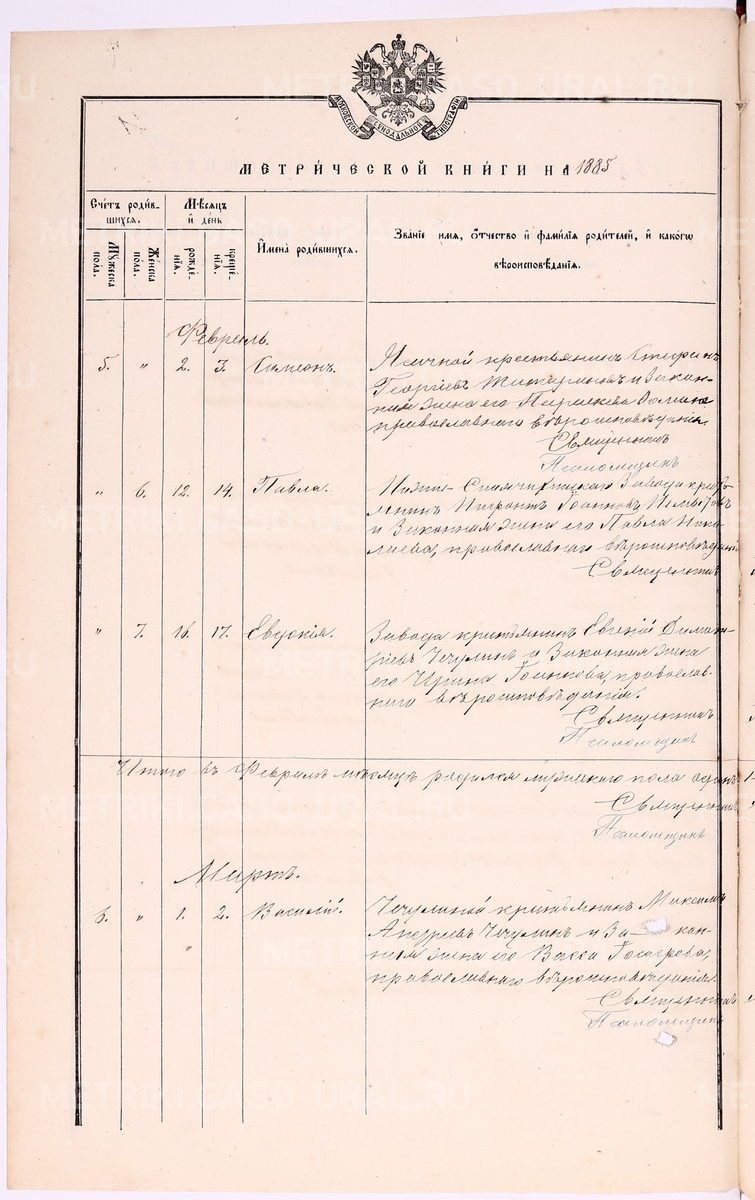 МОСКОВСКОЙ СѴНОДАЛЬНОЙ ТИПОГРАФІИ
МЕТРИ́ЧЕСКОЙ КНИ́ГИ НА 1885
Счéтъ роди́в-
шихся.
Мѣ́сяцъ
и҆ де́нь
И҆мена̀ роди́вшихся.
Зва́нїе имя, о҆́тчество и҆ фами́лїя роди́телей, и҆ како́гѡ
вѣроисповѣ́данїя.
Мꙋ́жеска
по́ла.
Же́нска
по́ла.
рожде́-
нїя.
креще́-
нїя.
Февраль.
5. " 2. 3. Симеонъ.
крестьянинъ Стефанъ
Георгіевъ и Закон-
ная жена его Параскева
православнаго вѣроисповѣданія
Священникъ
Псаломщикъ
" 6. 12. 14. Павла.
Завода кресть-
янинъ Іоанновъ
и Законная жена его Павла Нико-
лаева, православнаго вѣроисповѣданія
Священникъ
" 7. 16. 17. Евдокія.
Завода крестьянинъ Евгеній Димит-
ріевъ Чечулинъ и Законная жена
его Ирина Іоаннова, православ-
наго вѣроисповѣданія.
Священникъ
Псаломщикъ
Итого въ Февралѣ мѣсяцѣ родился мужескаго пола одинъ
Священникъ
Псаломщикъ
Мартъ.
6. " 1. 2. Василій.
крестьянинъ Максимъ
Андреевъ Чечулинъ и За- кон-
ная жена его Васса
православнаго вѣроисповѣданія.
Священникъ
Псаломщикъ
METRIKI.GASO-URAL.RU